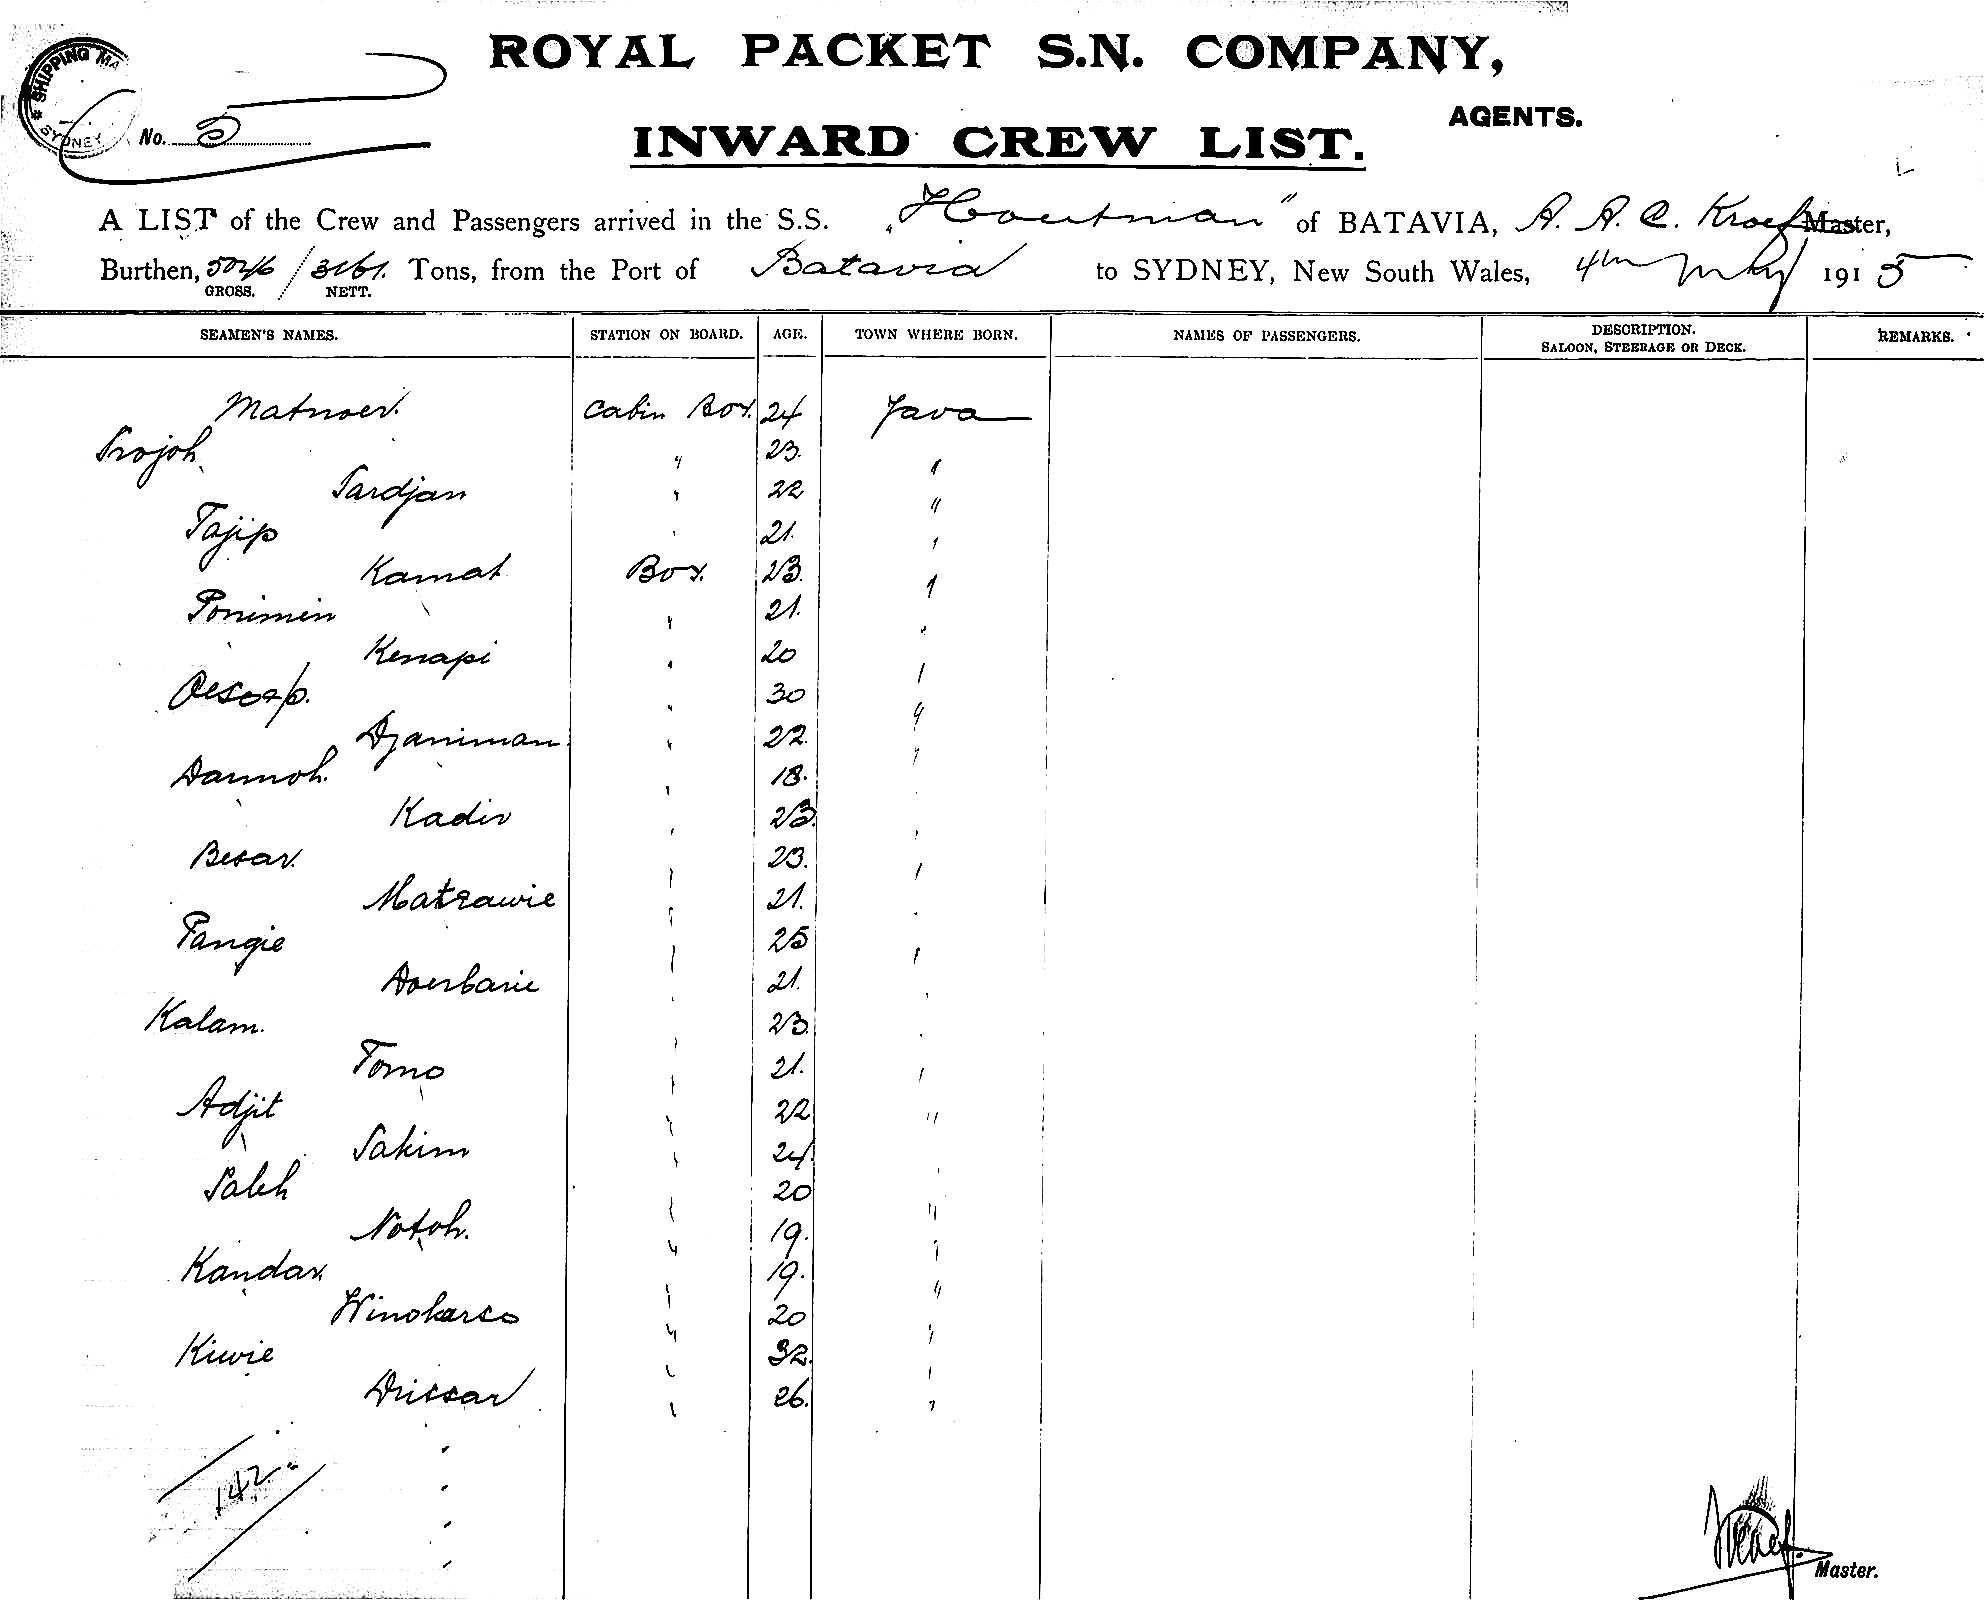 ROYAL PACKET S.N. COMPANY,
AGENTS.
SHIPPING MA
SYDNEY
No. 5
INWARD CREW LIST.
A LIST of the Crew and Passengers arrived in the S.S. „Houtman" of BATAVIA, A. A. C. Kroef Master,
Burthen, 5046 / 3161. Tons, from the Port of Batavia to SYDNEY, New South Wales, 4th May 1915
GROSS. NETT.
SEAMEN'S NAMES. STATION ON BOARD. AGE. TOWN WHERE BORN. NAMES OF PASSENGERS. DESCRIPTION. SALOON, STEERAGE OR DECK. REMARKS.
Matnoer. Cabin Boy. 24 Java
Trojoh. " 23. "
Sardjan " 22 "
Tajip " 21. "
Kamat Boy. 23. "
Ponimin " 21. "
Kenapi " 20 "
Oesoep. " 30 "
Djaniman. " 22. "
Dannoh. " 18. "
Kadir " 23. "
Besar. " 23. "
Matrawie " 21. "
Pangie " 25 "
Doerbarie " 21. "
Kalam. " 23. "
Tomo " 21. "
Adjit " 22 "
Sakim " 24. "
Saleh " 20 "
Notoh. " 19. "
Kandar. " 19. "
Winokarso " 20 "
Kiwie " 32. "
Drissar " 26. "
142
Master.